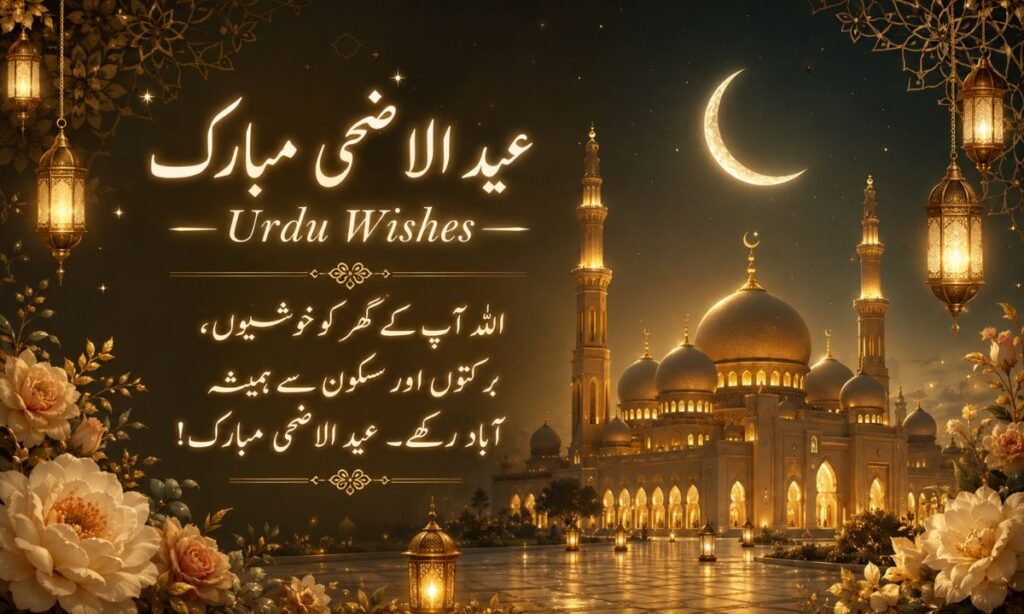 عید الاضحی مبارک
Urdu Wishes
اللہ آپ کے گھر کو خوشیوں،
برکتوں اور سکون سے ہمیشہ
آباد رکھے۔ عید الاضحی مبارک!